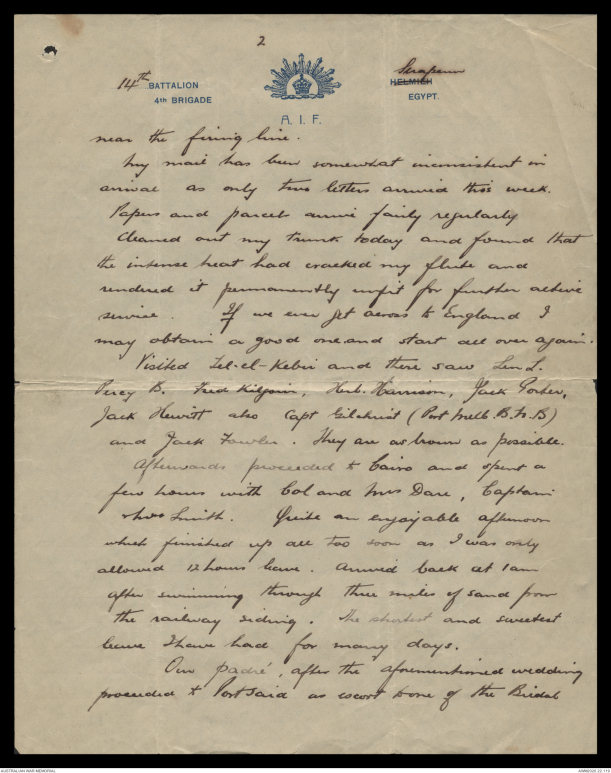 2
14th BATTALION
4th BRIGADE
A. I. F.
Serapeum
HELMIEH
EGYPT.
near the firing line.
My mail has been somewhat inconsistent in
arrival as only two letters arrived this week.
Papers and parcels arrive fairly regularly
Cleaned out my trunk today and found that
the intense heat had cracked my flute and
rendered it permanently unfit for further active
service. If we ever get across to England I
may obtain a good one and start all over again.
Visited Tel-el-Kebir and there saw Len L.
Percy B. Fred Kilgour, Herb. Harrison, Jack Porter,
Jack Hewitt also Capt Gilchrist (Port Melb. B.N.B)
and Jack Fowler. They are as brown as possible.
Afterwards proceeded to Cairo and spent a
few hours with Col and Mrs Dare, Captain
& Mrs Smith. Quite an enjoyable afternoon
which finished up all too soon as I was only
allowed 12 hours leave. Arrived back at 1am
after swimming through three miles of sand from
the railway siding. The shortest and sweetest
leave I have had for many days.
Our padré, after the aforementioned wedding
proceeded to Port Said as escort to one of the Bridal
AUSTRALIAN WAR MEMORIAL